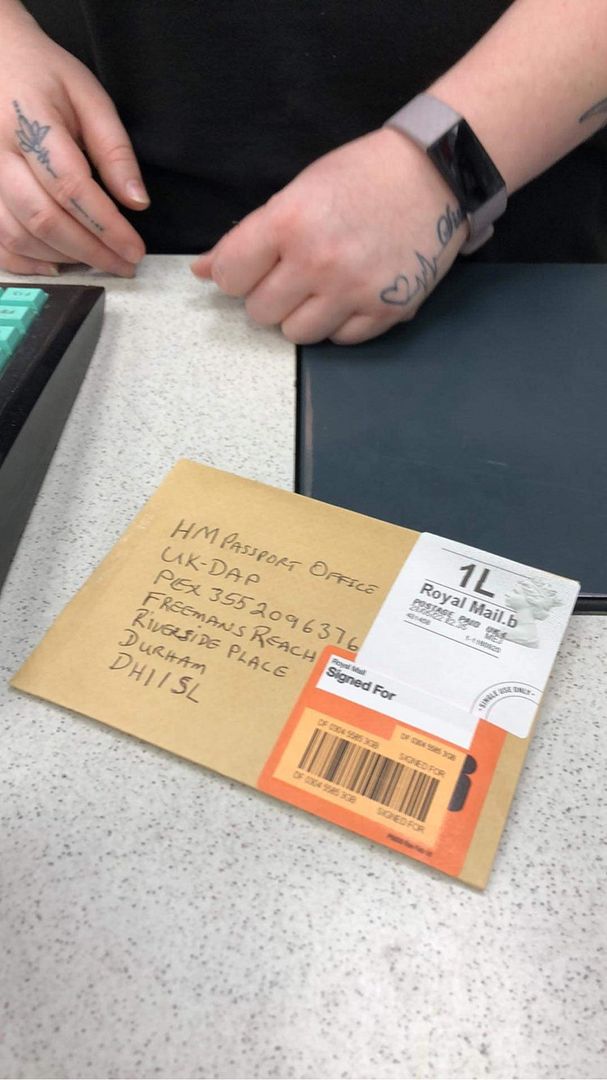 HM PASSPORT OFFICE
UK-DAP
PEX 355 209 6376
FREEMANS REACH
RIVERSIDE PLACE
DURHAM
DH1 1SL
1L
Royal Mail.b
POSTAGE PAID UK
1-1180920
SINGLE USE ONLY
Royal Mail
Signed For
DF 0304 5585 3GB
DF 0304 5585 3GB
SIGNED FOR
DF 0304 5585 3GB
SIGNED FOR